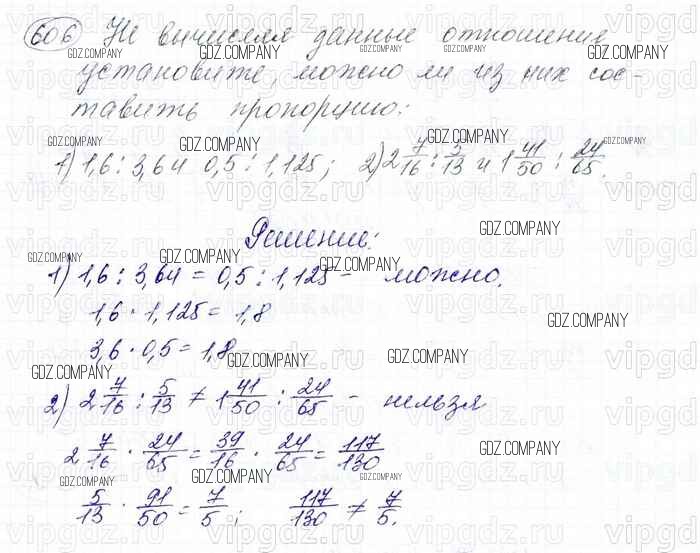 606 Не вычисляя данные отношения,
установите, можно ли из них сос-
тавить пропорцию:
1) 1,6 : 3,6 и 0,5 : 1,125; 2) 2 7/16 : 5/13 и 1 41/50 : 24/65.
Решение:
1) 1,6 : 3,64 = 0,5 : 1,125 - можно.
1,6 · 1,125 = 1,8
3,6 · 0,5 = 1,8
2) 2 7/16 : 5/13 ≠ 1 41/50 : 24/65 - нельзя
2 7/16 · 24/65 = 39/16 · 24/65 = 117/130
5/13 · 91/50 = 7/5; 117/130 ≠ 7/5.
GDZ.COMPANY
vipgdz.ru